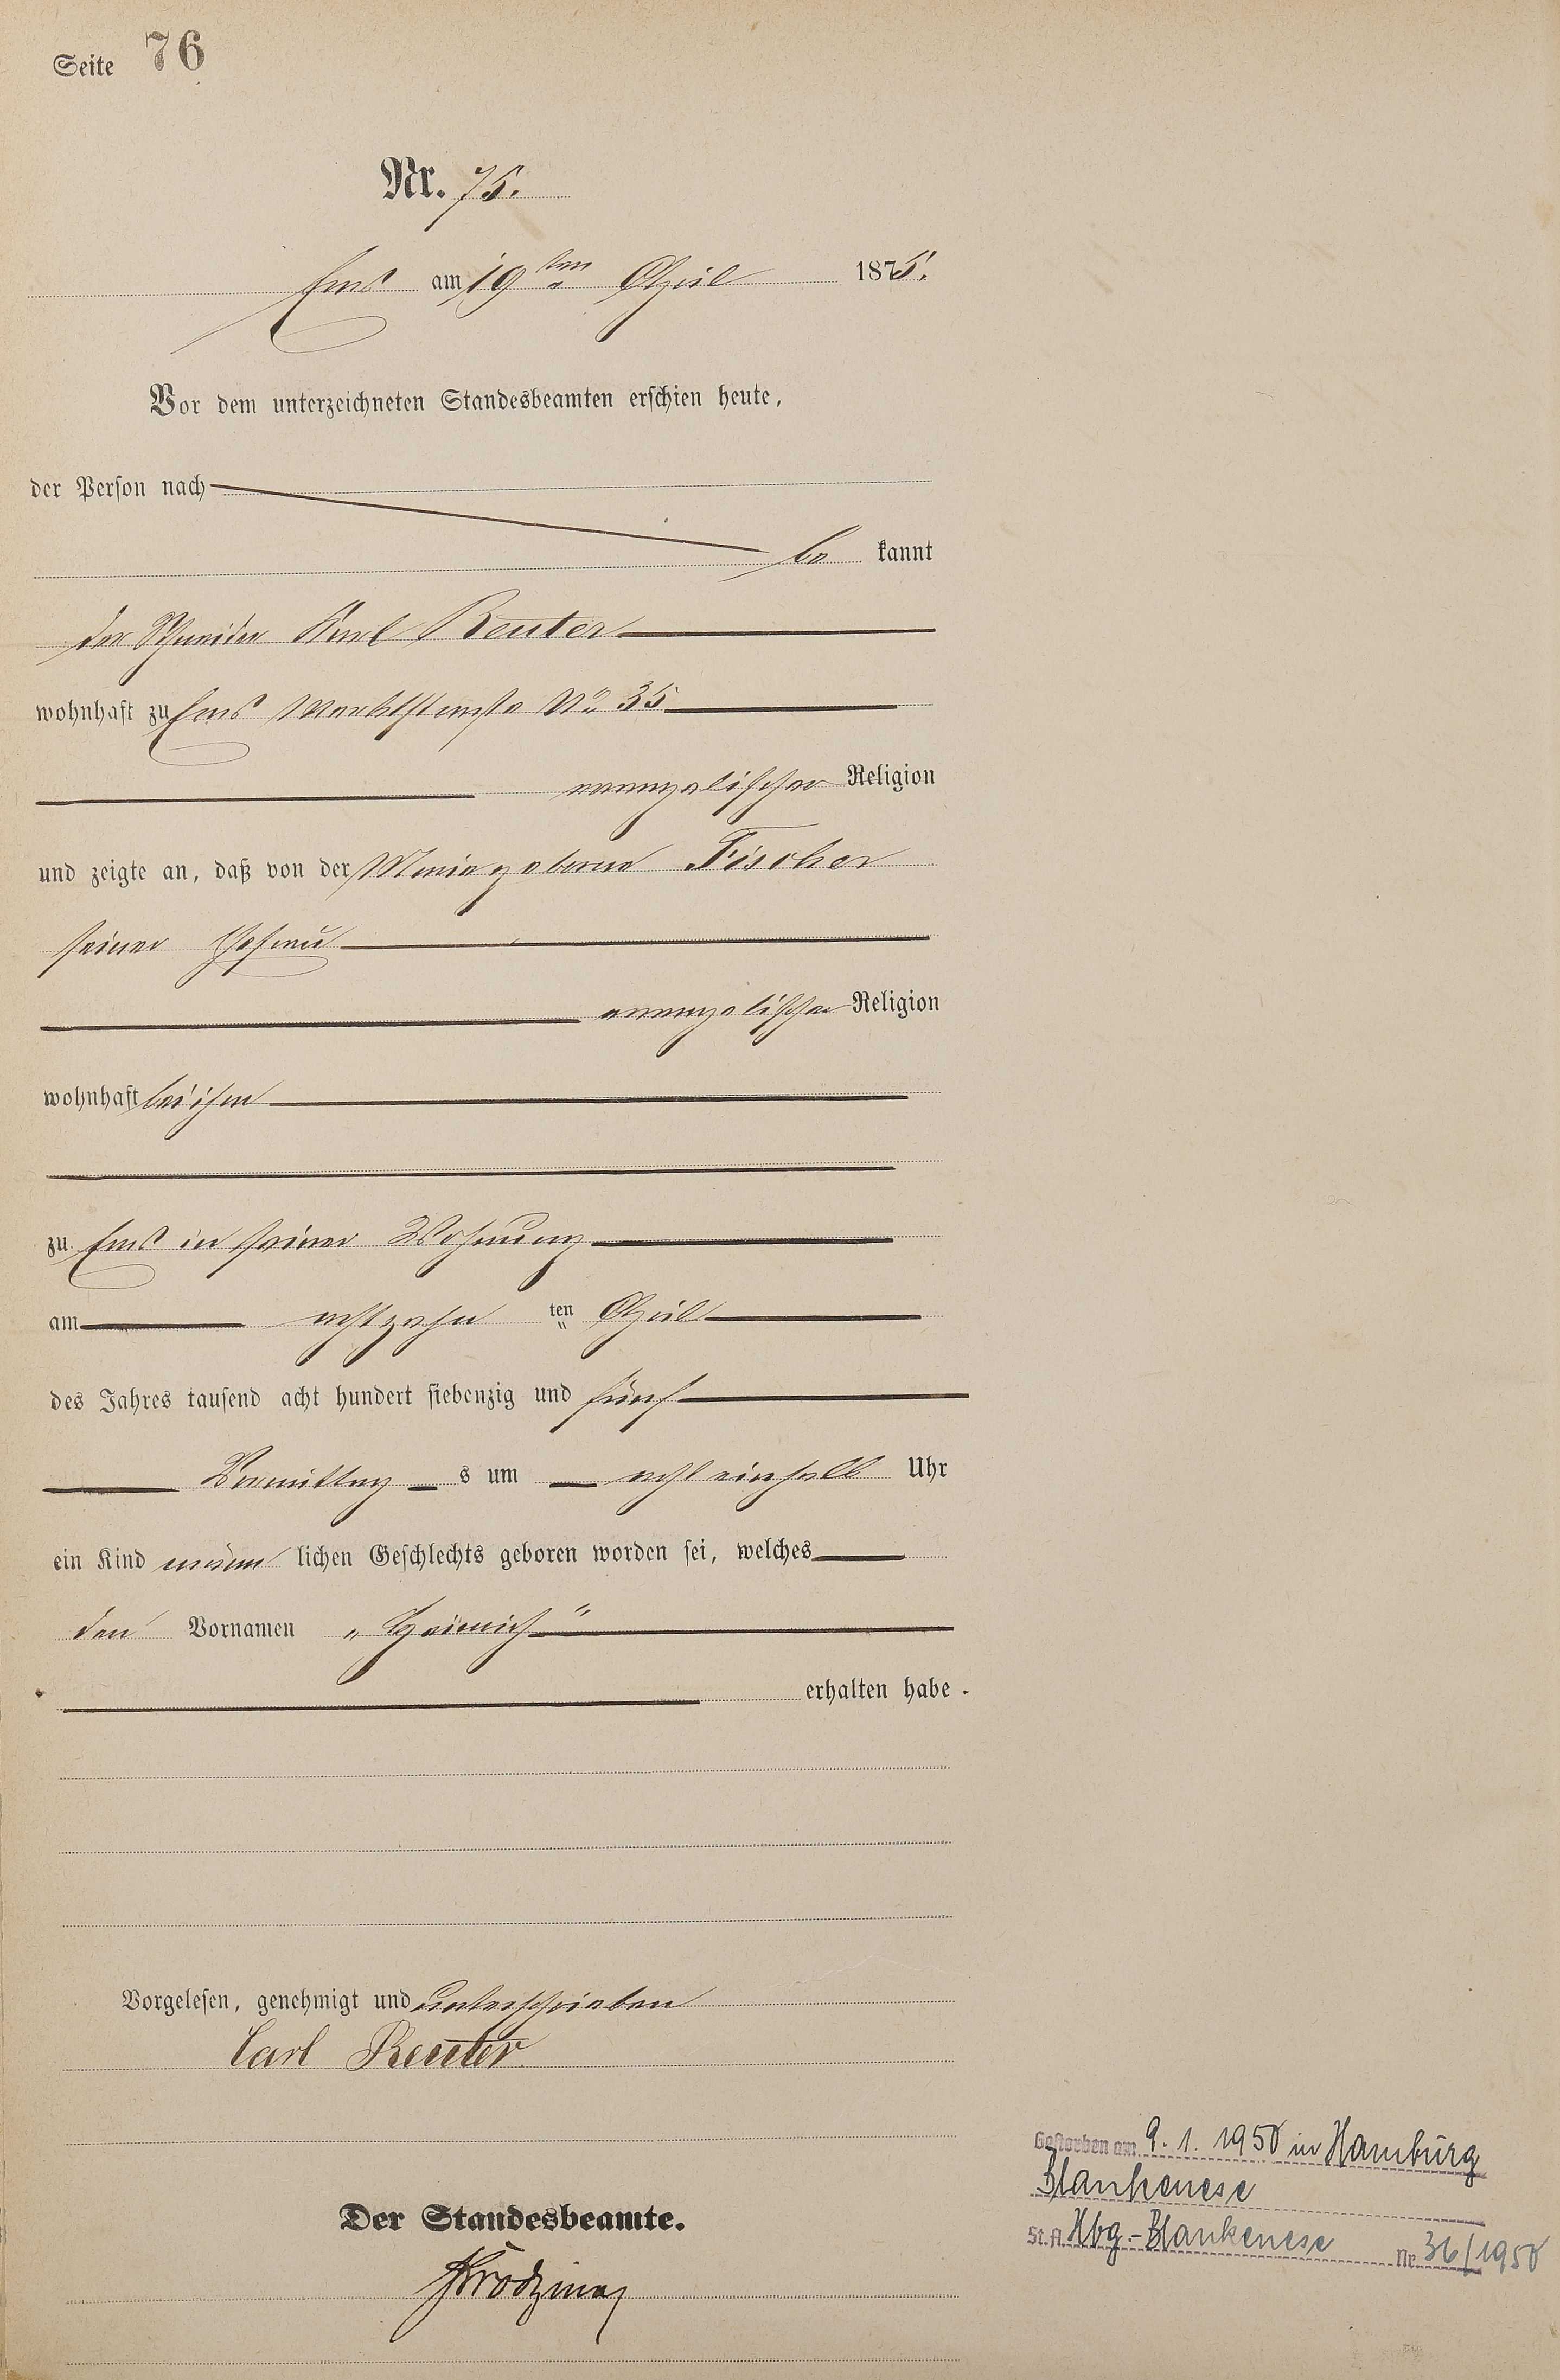 Seite 76
Nr. 75.
Ems am 19ten April 1875.
Vor dem unterzeichneten Standesbeamten erschien heute,
der Person nach
be kannt
der Schneider Karl Reuter
wohnhaft zu Ems Marktstraße No 35
evangelischer Religion
und zeigte an, daß von der Marie geborne Fischer
seiner Ehefrau
evangelischer Religion
wohnhaft bei ihm
zu Ems in seiner Wohnung
am achtzehn ten April
des Jahres tausend acht hundert siebenzig und fünf
Vormittag s um acht einhalb Uhr
ein Kind männ lichen Geschlechts geboren worden sei, welches
den Vornamen „Heinrich“
erhalten habe.
Vorgelesen, genehmigt und unterschrieben
Carl Reuter
Der Standesbeamte.
Gestorben am 9. 1. 1950 in Hamburg
Blankenese
St. A. Hbg.-Blankenese Nr. 36/1950